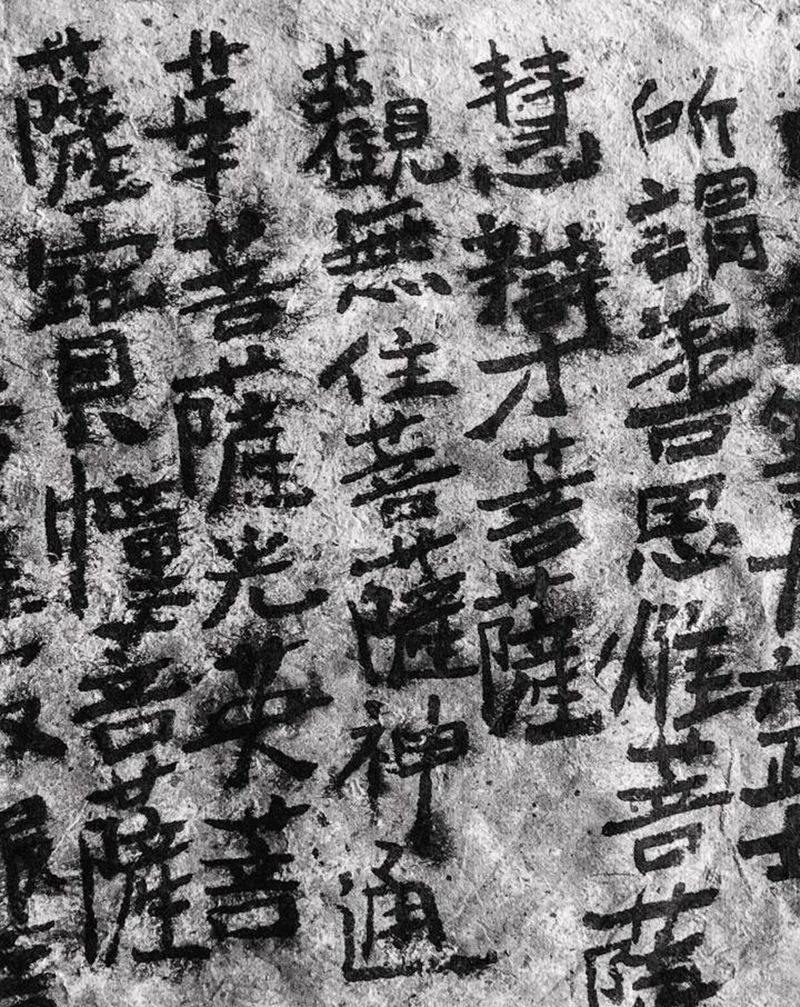 等十六正士
所謂善思惟菩薩
慧辯才菩薩
觀無住菩薩神通
華菩薩光英菩
薩寶幢菩薩